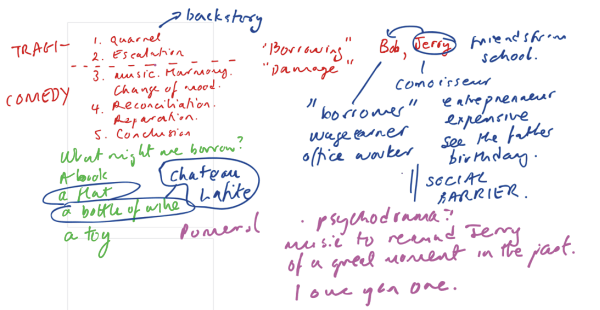 backstory
TRAGI-
COMEDY
1. Quarrel
2. Escalation
3. Music. Harmony.
Change of mood.
4. Reconciliation.
Reparation.
5. Conclusion
"Borrowing"
"Damage"
Bob, Jerry
Friends from
school.
"borrower"
wage earner
office worker
entrepreneur
expensive
see the father
birthday.
SOCIAL
BARRIER.
What might we borrow?
A book
a flat
a bottle of wine
a toy
Chateau
Lafite
Pomerol
. psychodrama?
music to remind Jerry
of a great moment in the past.
I owe you one.